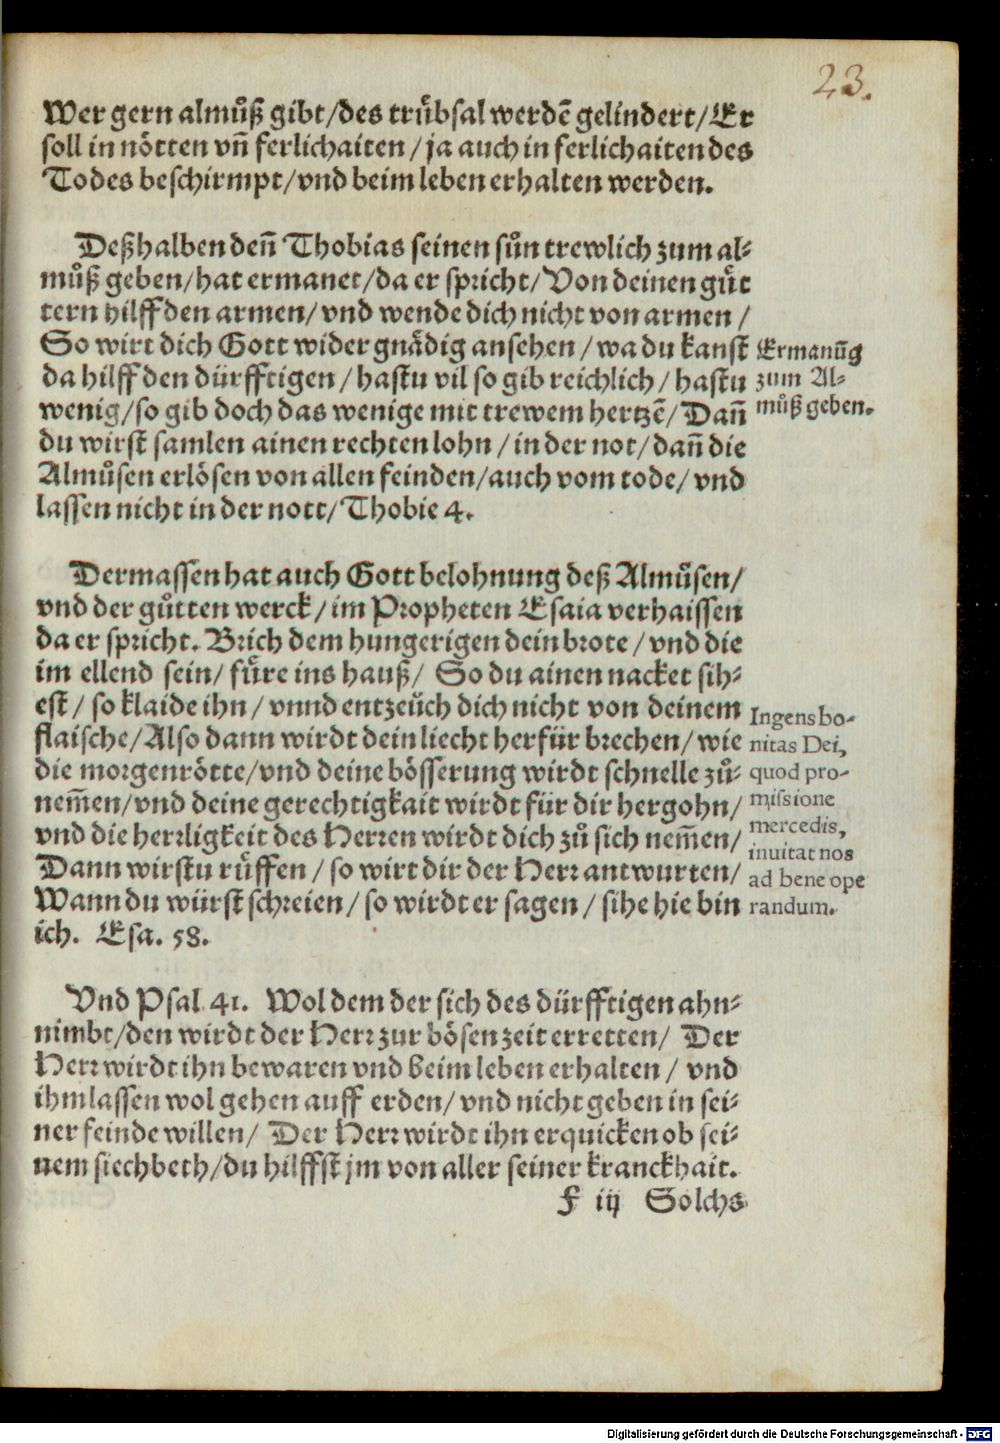 23.
Wer gern almuͦß gibt/des truͤbsal werdē gelindert/Er
soll in noͤtten vn̄ ferlichaiten/ja auch in ferlichaiten des
Todes beschirmpt/vnd beim leben erhalten werden.
Deßhalben den̄ Thobias seinen suͦn trewlich zum al⸗
muͦß geben/hat ermanet/da er spricht/Von deinen guͤt
tern hilff den armen/ vnd wende dich nicht von armen/
So wirt dich Gott wider gnaͤdig ansehen/wa du kanst
da hilff den dürfftigen/hastu vil so gib reichlich/hastu
wenig/so gib doch das wenige mit trewem hertzē/Dan̄
du wirst samlen ainen rechten lohn/in der not/dan̄ die
Almuͦsen erloͤsen von allen feinden/auch vom tode/vnd
lassen nicht in der nott/Thobie 4.
Ermanūg
zum Al⸗
muͦß geben.
Dermassen hat auch Gott belohnung deß Almuͦsen/
vnd der guͦtten werck/im Propheten Esaia verhaissen
da er spricht. Brich dem hungerigen dein brote/vnd die
im ellend sein/fuͤre ins hauß/ So du ainen nacket sih⸗
est/so klaide ihn/vnnd entzeuͤch dich nicht von deinem
flaische/Also dann wirdt dein liecht herfür brechen/wie
die morgenroͤtte/vnd deine boͤsserung wirdt schnelle zuͦ⸗
nem̄en/vnd deine gerechtigkait wirdt für dir hergohn/
vnd die herrligkeit des Herren wirdt dich zuͦ sich nem̄en/
Dann wirstu ruͤffen/so wirt dir der Herr antwurten/
Wann du würst schreien/so wirdt er sagen/sihe hie bin
ich. Esa. 58.
Ingens bo-
nitas Dei,
quod pro-
missione
mercedis,
inuitat nos
ad bene ope
randum.
Vnd Psal 41. Wol dem der sich des dürfftigen ahn⸗
nimbt/den wirdt der Herr zur boͤsen zeit erretten/ Der
Herr wirdt ihn bewaren vnd beim leben erhalten/ vnd
ihm lassen wol gehen auff erden/vnd nicht geben in sei⸗
ner feinde willen/ Der Herr wirdt ihn erquicken ob sei⸗
nem siechbeth/du hilffst jm von aller seiner kranckhait.
F iij Solchs
Digitalisierung gefördert durch die Deutsche Forschungsgemeinschaft - DFG